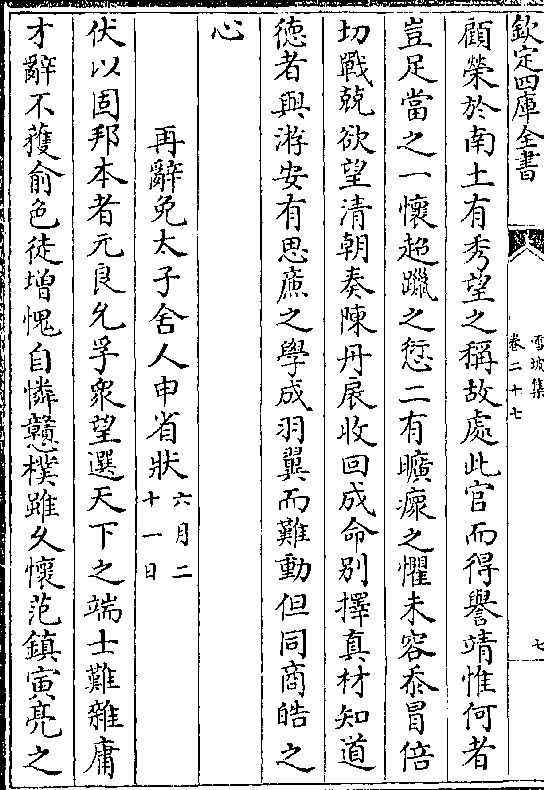 欽定四庫全書
雪坡集
卷二十七
七
顧榮於南土有秀望之稱故處此官而得譽靖惟何者
豈足當之一懷超躐之愆二有曠瘝之懼未容忝冒倍
切戰兢欲望清朝奏陳丹扆收回成命别擇真材知道
德者與游安有思廉之學成羽翼而難動但同商皓之
心
再辭免太子舍人申省狀六月二十一日
伏以固邦本者元良允孚衆望選天下之端士難雜庸
才辭不獲俞色徒增愧自憐戇樸雖久懷范鎮寅亮之